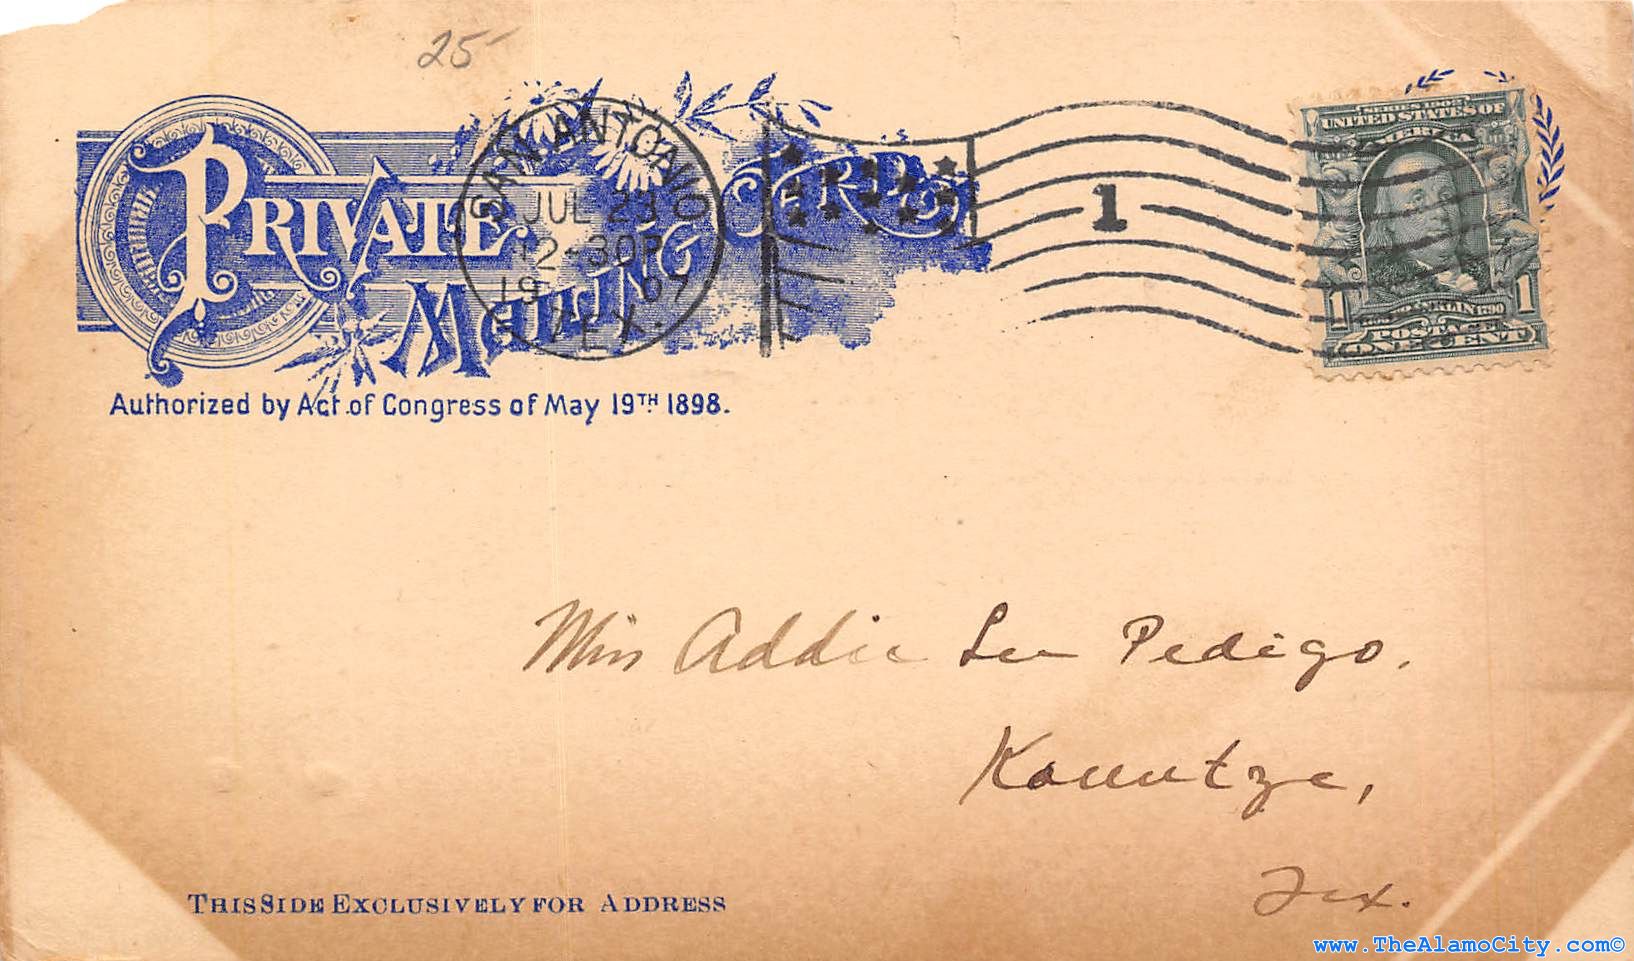 25
PRIVATE
MAILING
CARD
Authorized by Act of Congress of May 19TH 1898.
SAN ANTONIO
JUL 23
12-30P
1907
TEX.
1
SERIES 1902
UNITED STATES OF
AMERICA
1 1
POSTAGE
ONE CENT
Miss Addie Lee Pedigo.
Kountze,
Tex.
THIS SIDE EXCLUSIVELY FOR ADDRESS
www.TheAlamoCity.com©